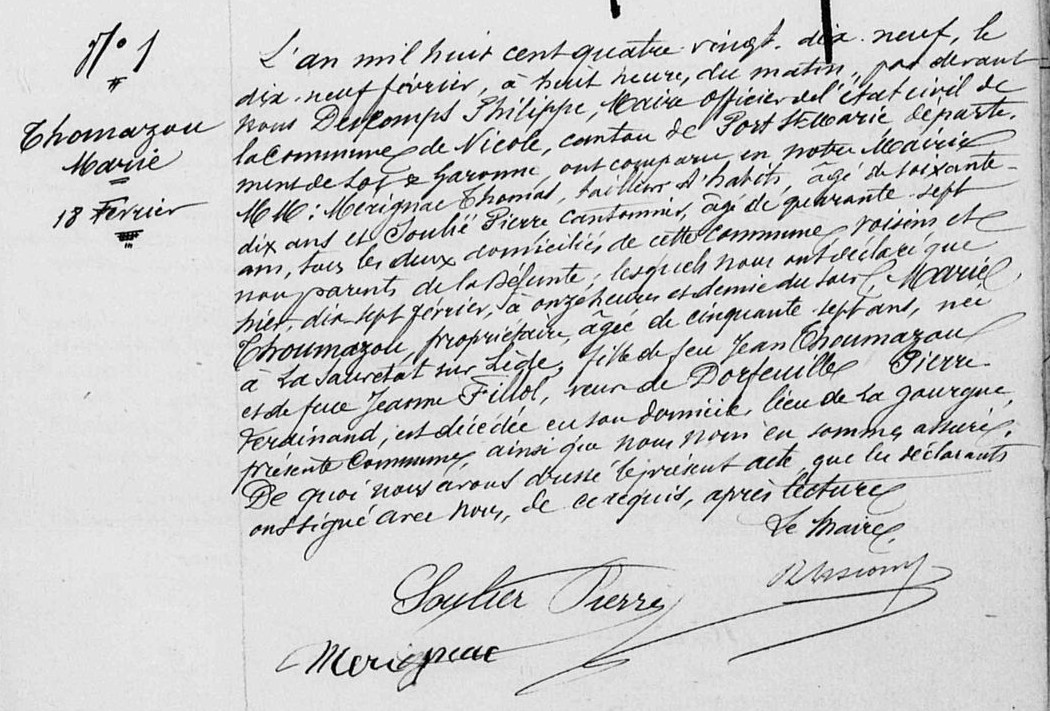 N° 1
Thomazou
Marie
18 Février
L'an mil huit cent quatre vingt. dix. neuf, le
dix. neuf février, à huit heure, du matin, par devant
nous Descomps Philippe, Maire officier de l'état civil de
la Commune de Nicole, canton de Port Ste Marie départe.
ment de Lot & Garonne, ont comparu en notre Mairie
MM: Merignac Thomas, tailleur d'habits, âgé de soixante-
dix ans et Soulié Pierre cantonnier, âgé de quarante-sept
ans, tous les deux domiciliés de cette Commune, voisins et
non parents de la Défunte; lesquels nous ont déclaré que
hier, dix-sept février, à onze heures et demie du soir, Marie
Thoumazou, propriétaire, âgée de cinquante-sept ans, née
à La Sauvetat sur Lède, fille de feu Jean Thoumazou
et de feue Jeanne Fillol, veuve de Dorfeuille Pierre
Ferdinand, est décédée en son domicile, lieu de La gourgue,
présente Commune, ainsi que nous nous en sommes assuré.
De quoi nous avons dressé le présent acte, que les déclarants
ont signé avec nous, de ce requis, après lecture
Le Maire,
Soulier Pierre
Merignac